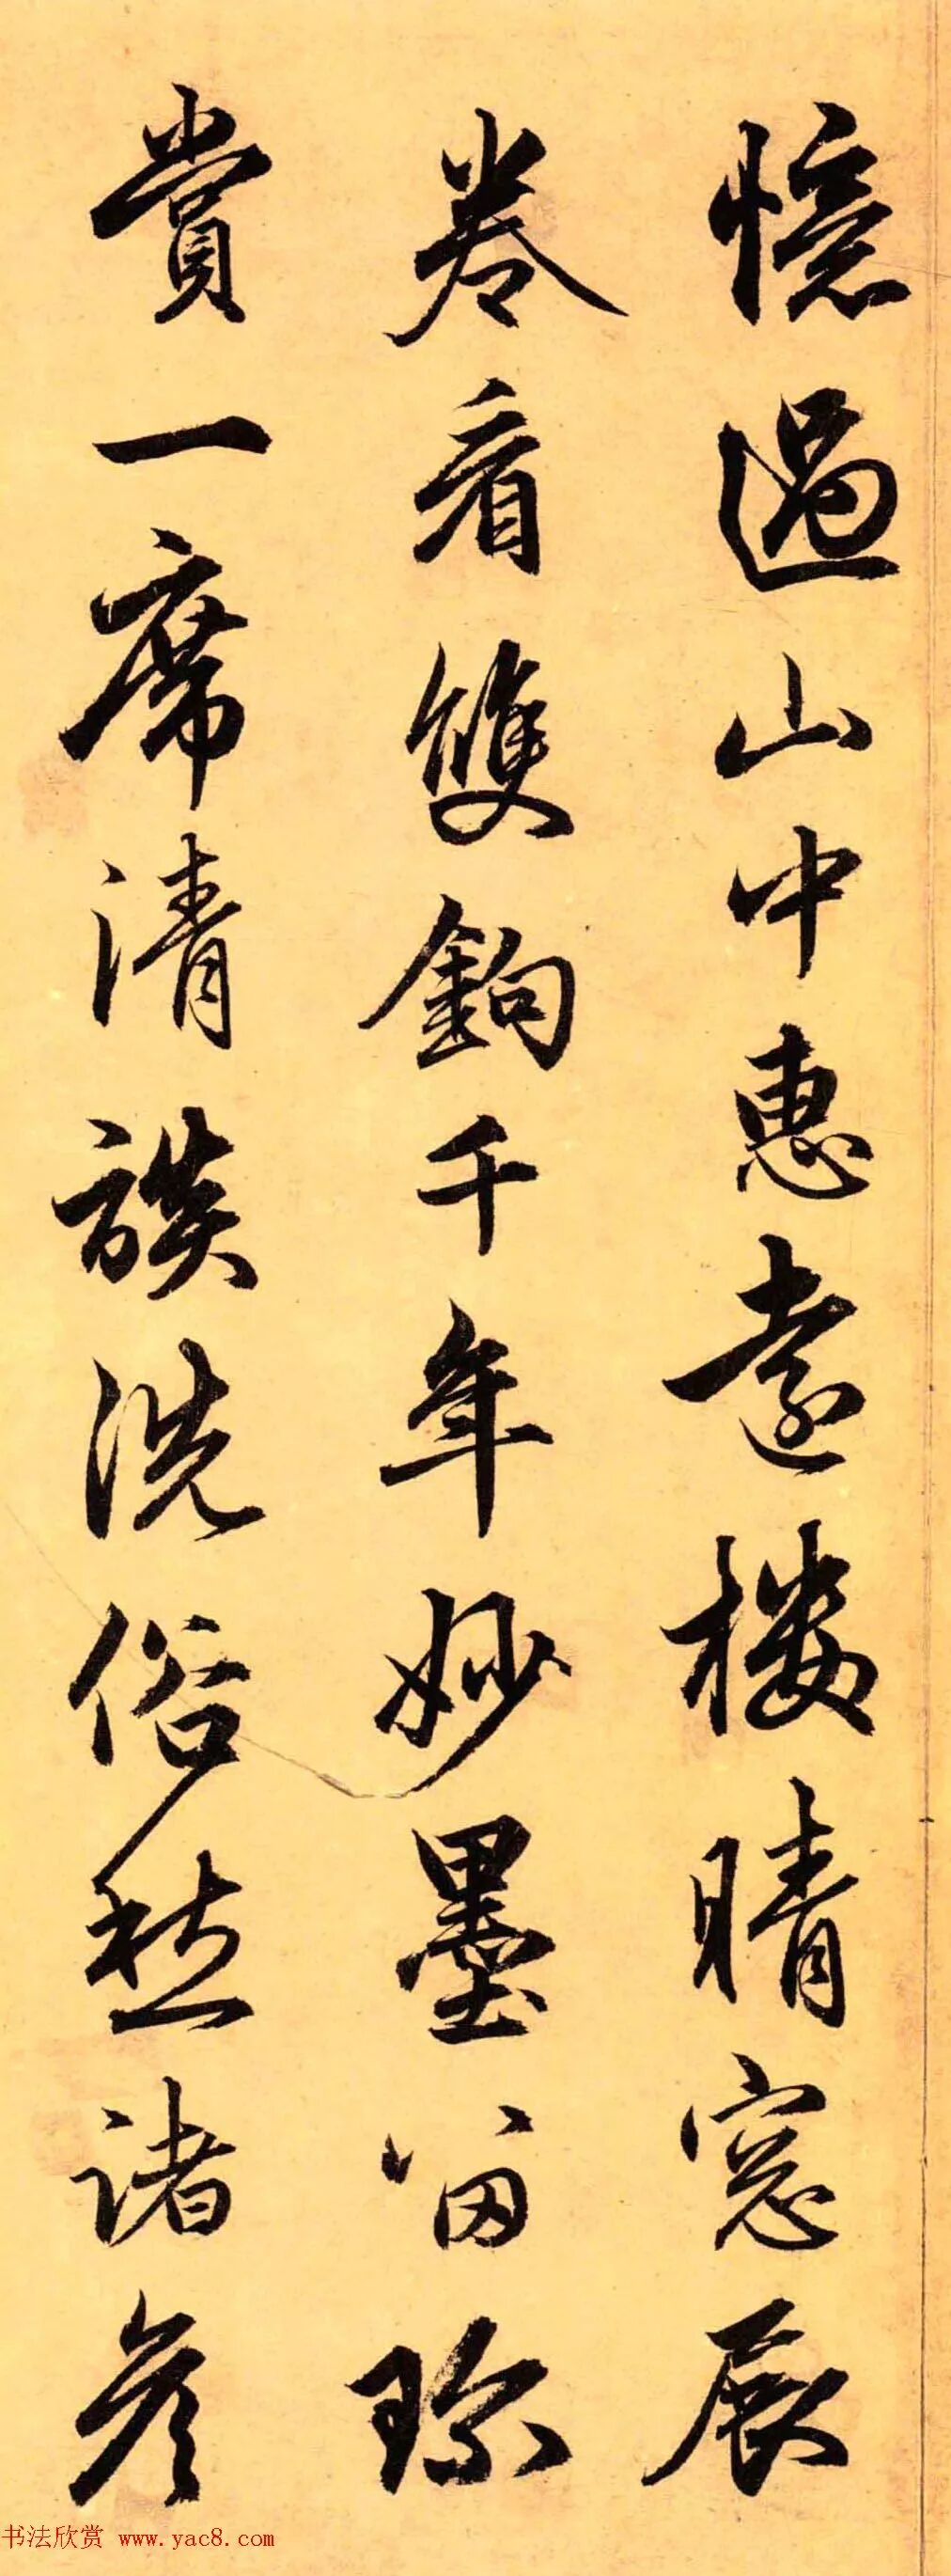 憶過山中惠遠樓晴窓展
卷看雙鉤千年妙墨留珎
賞一席清談洗俗愁諸彦
书法欣赏 www.yac8.com